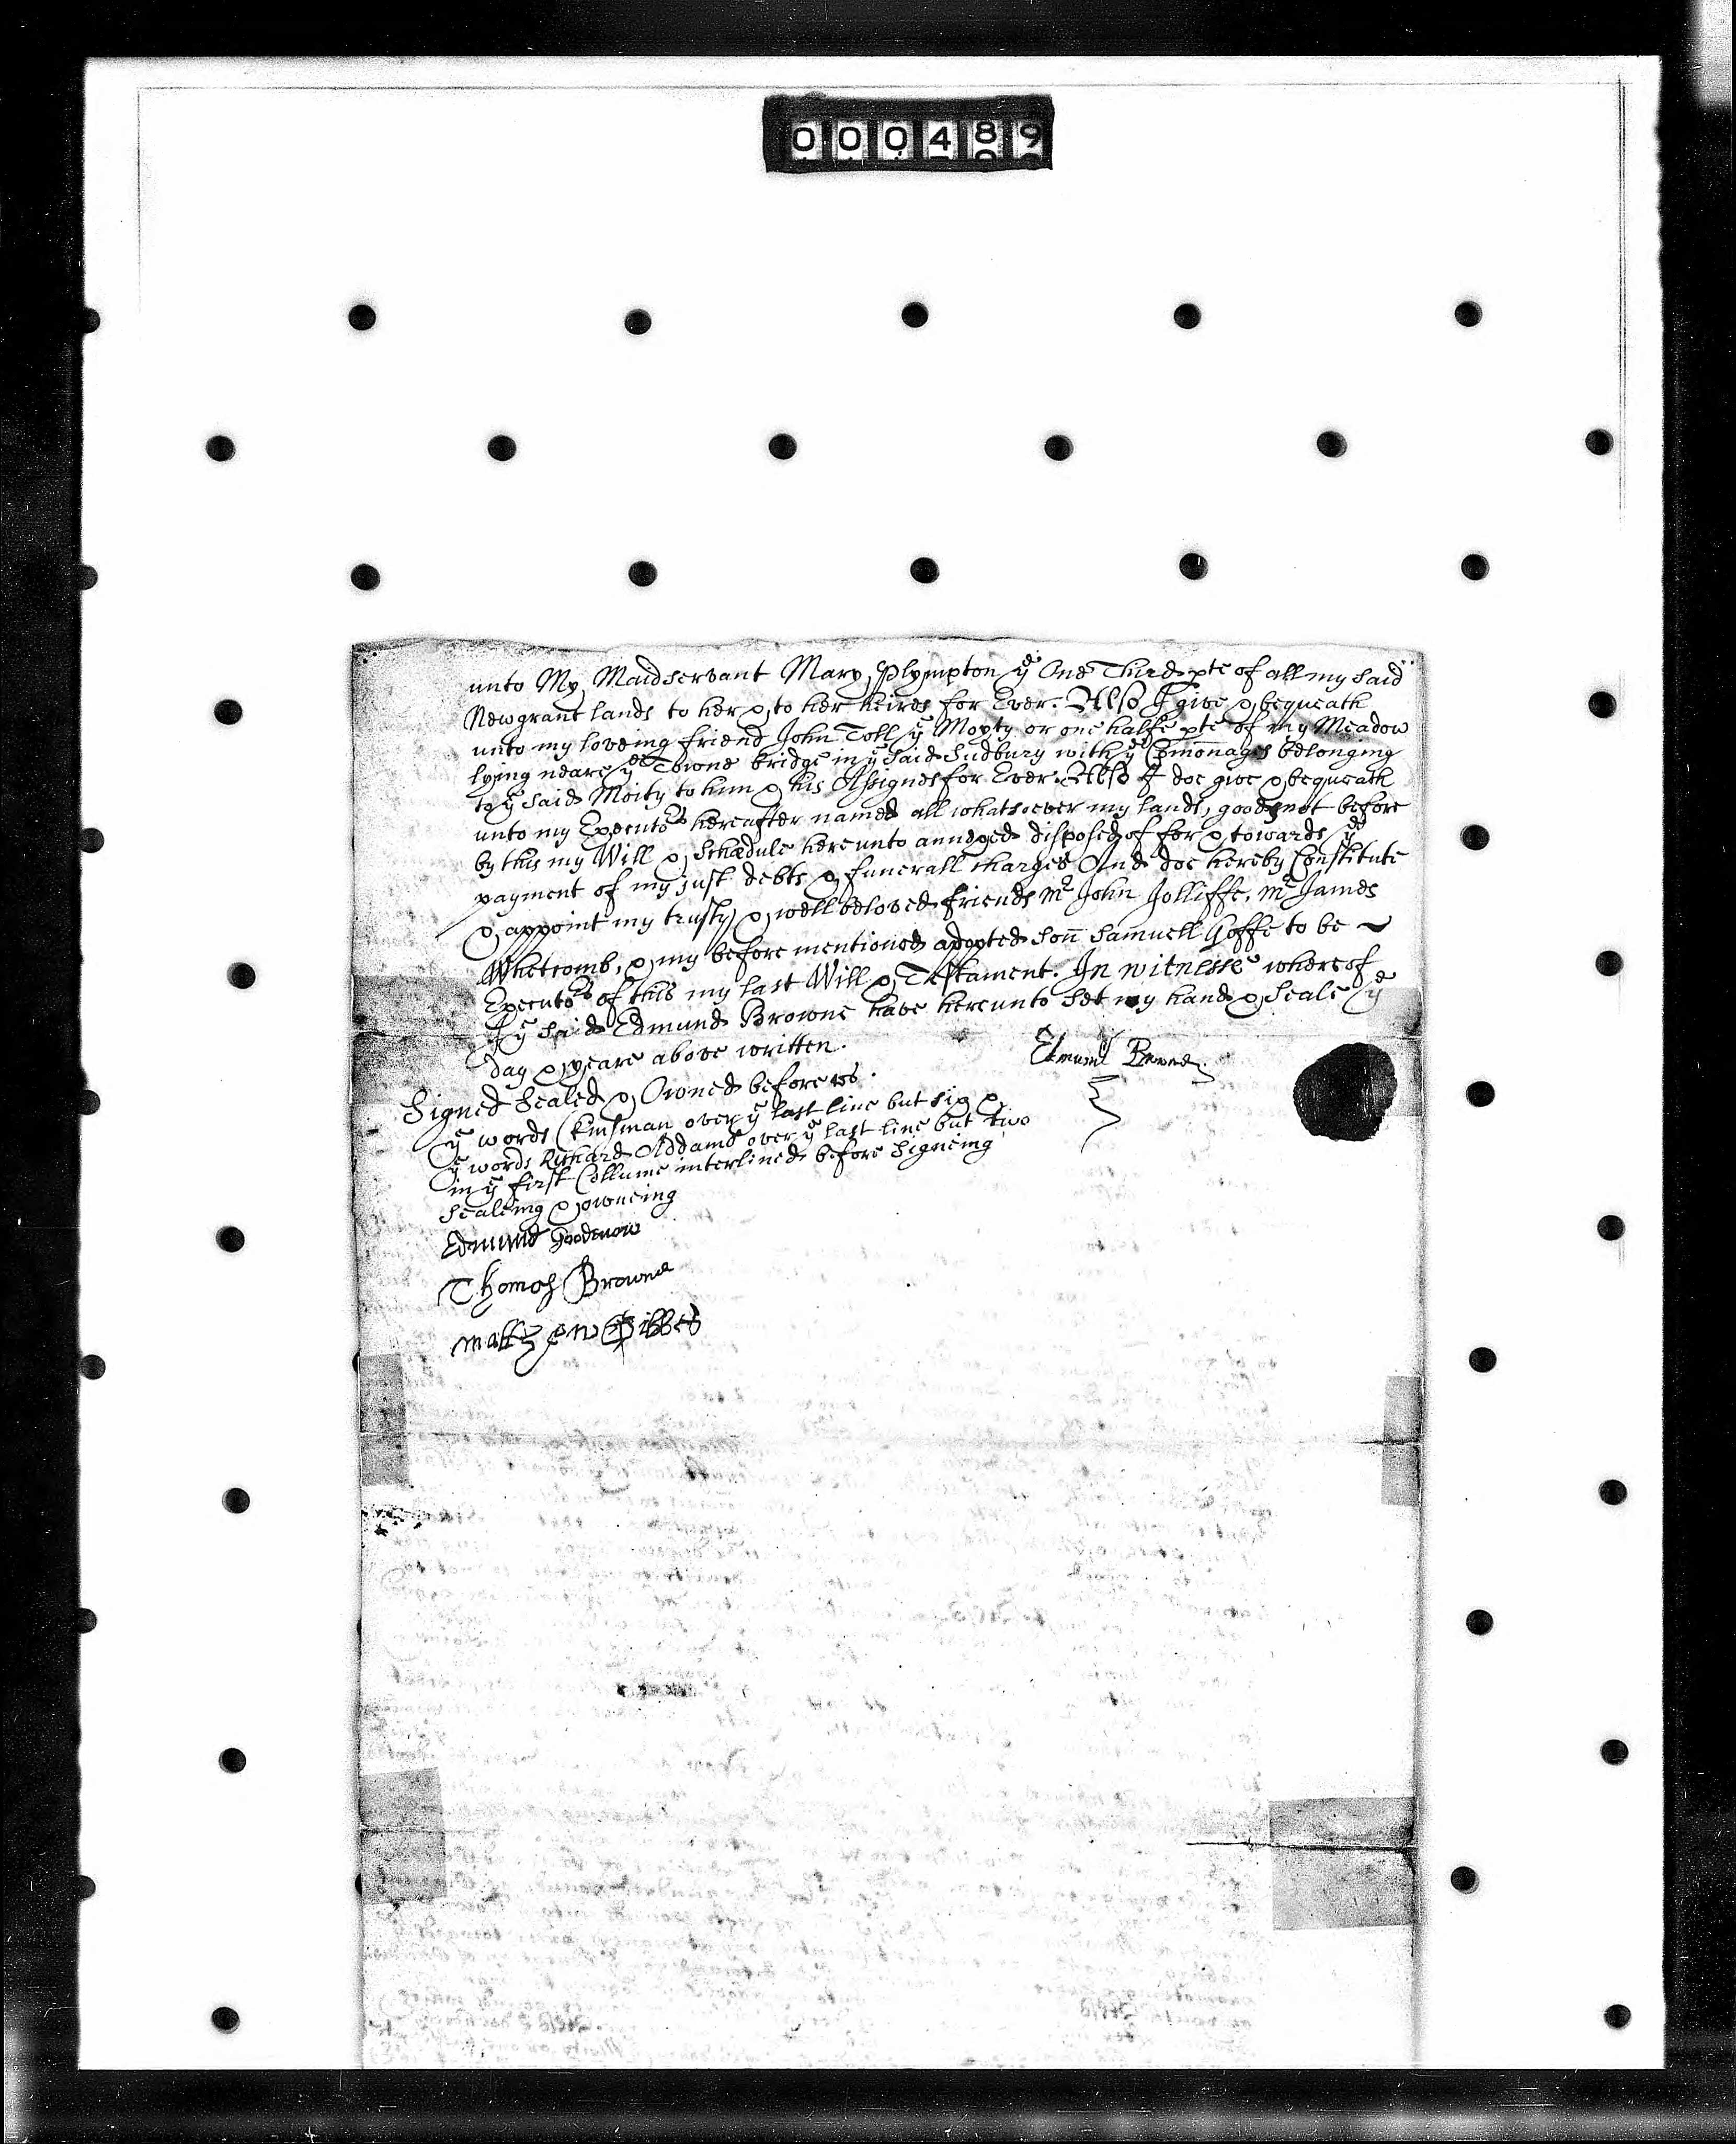 000489
unto My Maidservant Mary Plympton yͤ One Third pte of all my said
Newgrant lands to her & to her heires for Ever. Also I give & bequeath
unto my loveing friend John Toll yͤ Moyty or one halfe pte of my Meadow
lying neare yͤ Towne bridge in yͤ said Sudbury with yͤ Com̄onages belonging
to yͤ said Moity to him & his Assignes for Ever. Also I doe give & bequeath
unto my Executoʳˢ hereafter named all whatsoever my lands, goods not before
by this my Will & Schædule hereunto annexed disposed of for & towards yͤ
payment of my just debts & funerall charges And doe hereby Constitute
& appoint my trusty & well beloved friends Mʳ John Jolliffe, Mʳ James
Whetcomb, & my before mentioned adopted son̄ Samuell Goffe to be ~
Executoʳˢ of this my last Will & Testament. In witnesse whereof
I yͤ said Edmund Browne have hereunto set my hand & seale yͤ
day & yeare above written.
Edmund Browne
Signed Sealed & Owned before us.
yͤ words (kinsman over yͤ last line but six &
yͤ words Richard Addams over yͤ last line but two
in yͤ first Collume interlined before Signeing
sealeing & owneing
Edmund Goodnow
Thomas Browne
Matthew Gibbes